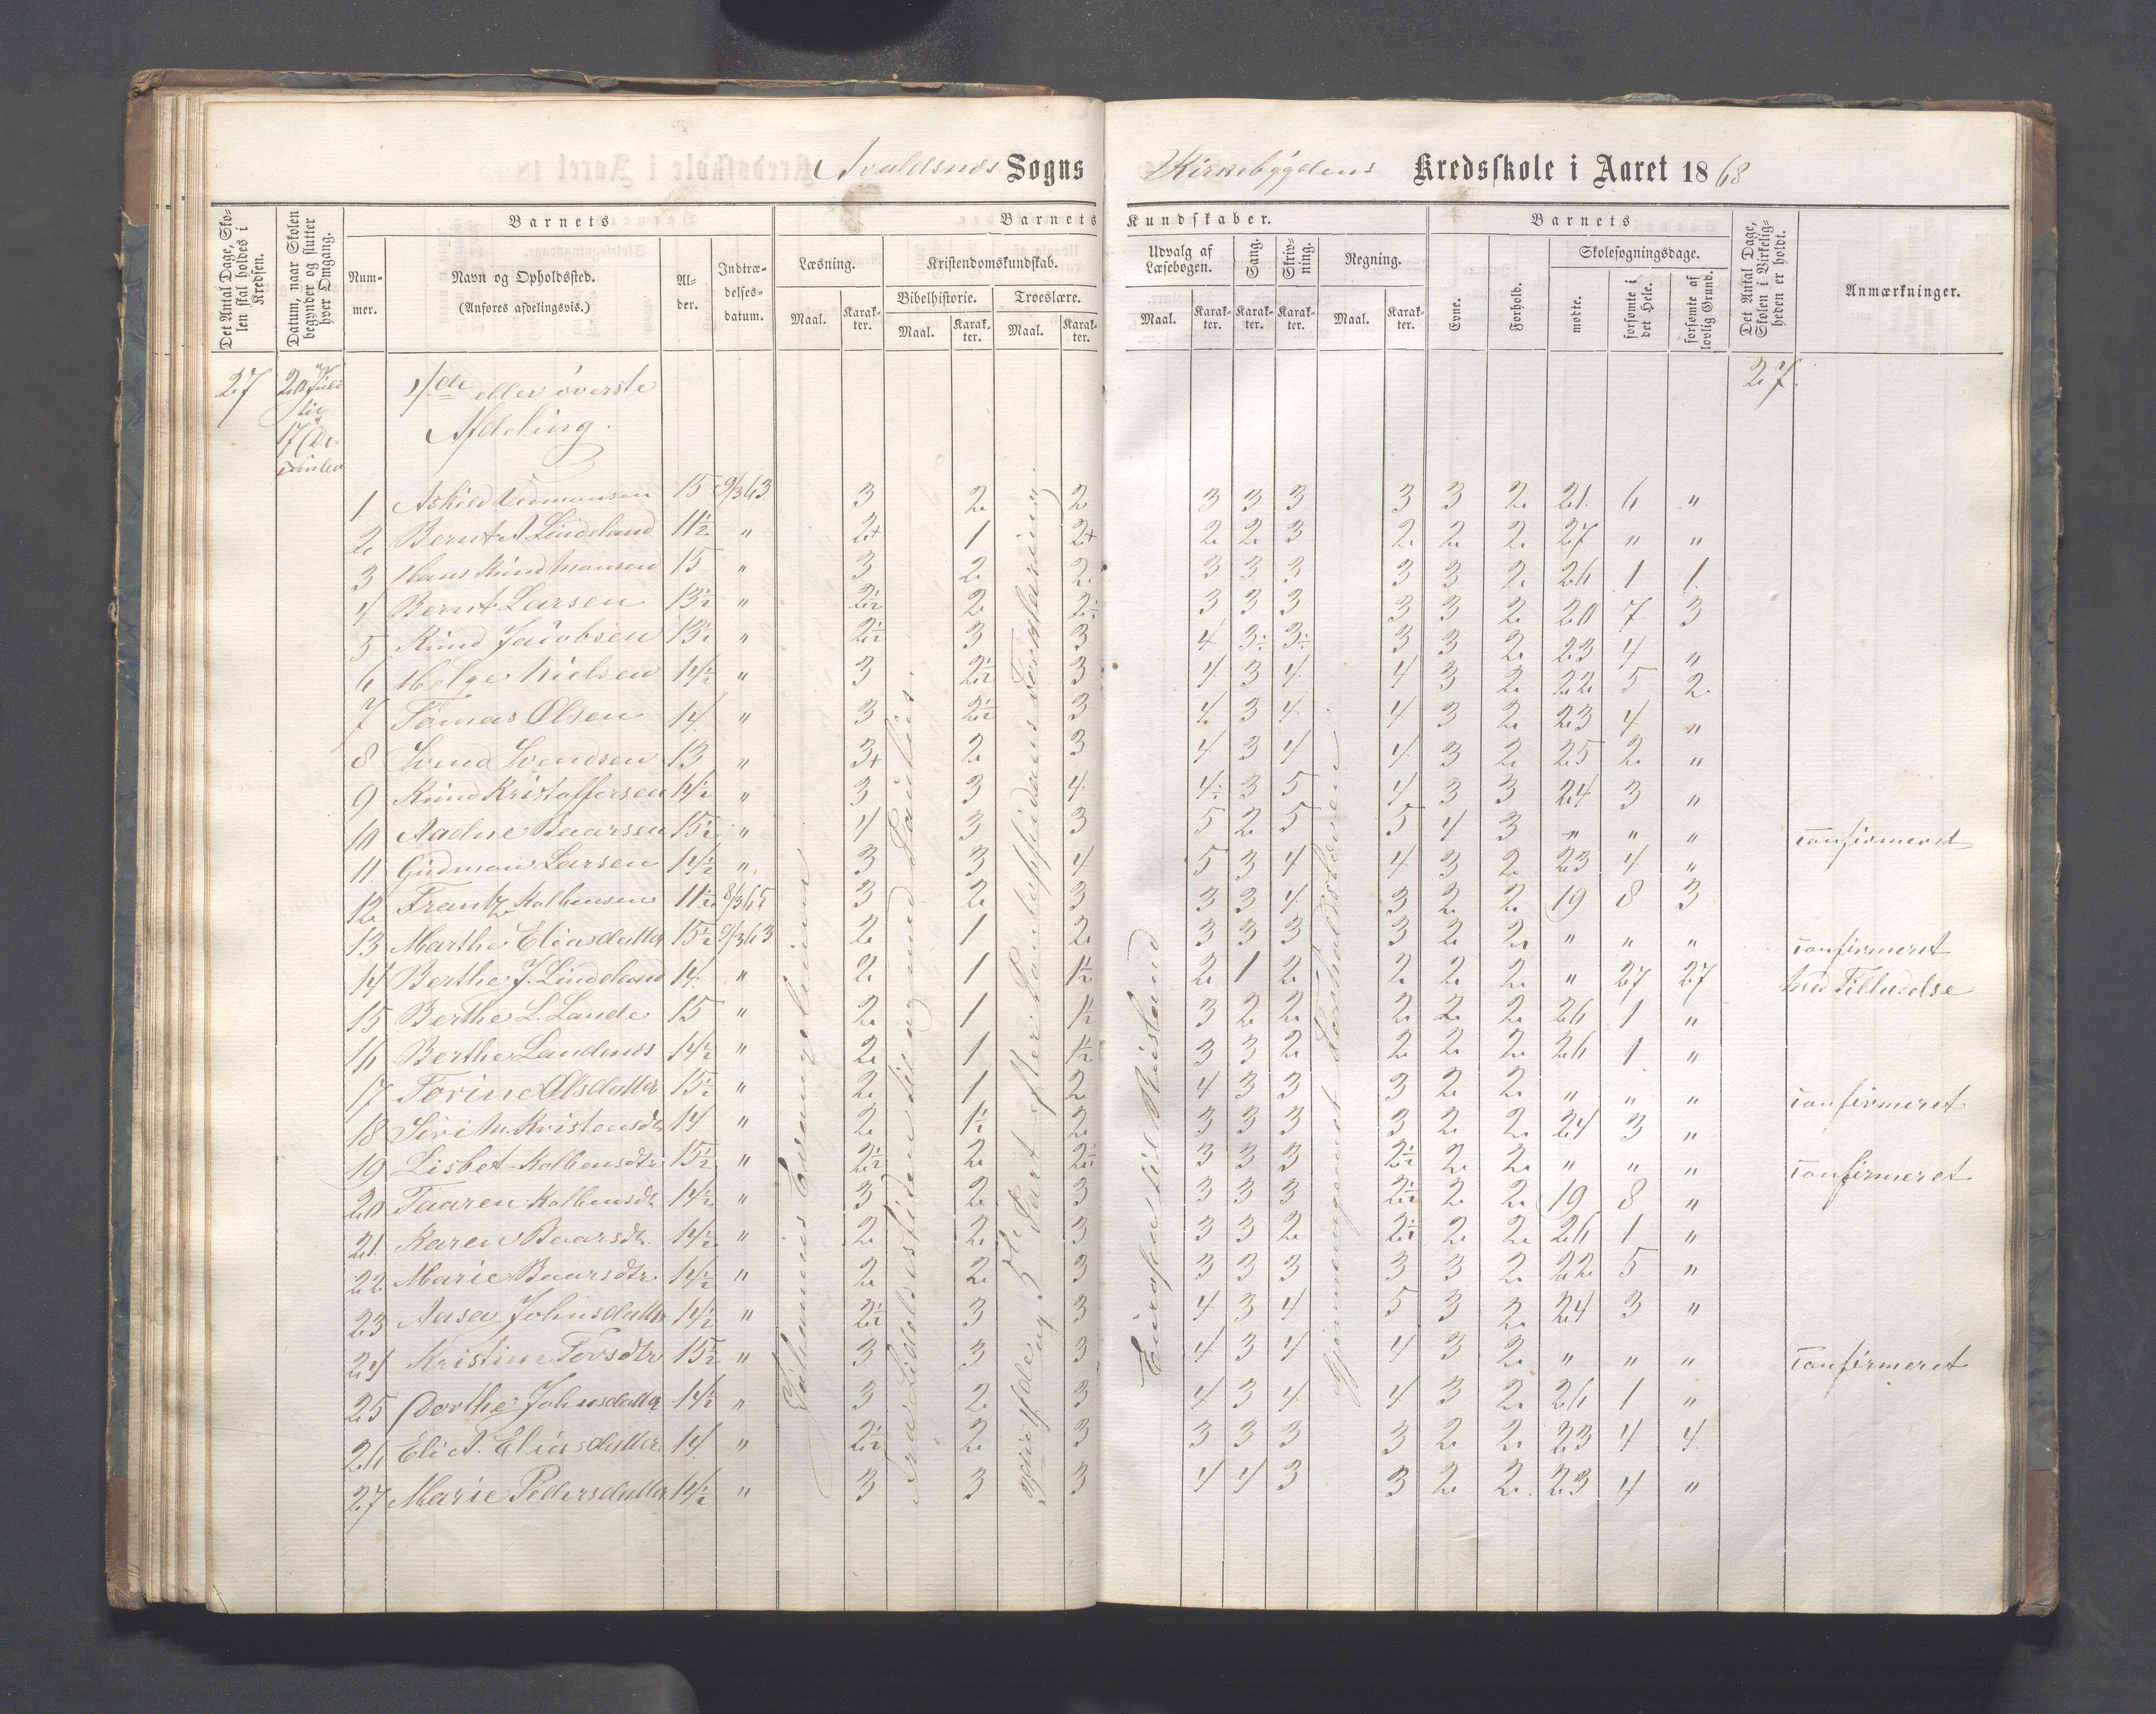 Avaldsnes Sogns Kirkebygdens Kredsskole i Aaret 1868
Det Antal Dage, Skolen skal holdes i Kredsen.
Datum, naar Skolen begynder og slutter hver Omgang.
Barnets
Nummer.
Navn og Opholdssted.
(Anføres afdelingsvis.)
Alder.
Indtrædelsesdatum.
Barnets Kundskaber.
Læsning.
Maal. Karakter.
Kristendomskundskab.
Bibelhistorie.
Maal. Karakter.
Troeslære.
Maal. Karakter.
Udvalg af Læsebogen.
Maal. Karakter.
Sang.
Karakter.
Skrivning.
Karakter.
Regning.
Maal. Karakter.
Barnets
Evne.
Forhold.
Skolesøgningsdage.
mødte.
forsømte i det Hele.
forsømte af lovlig Grund.
Det Antal Dage, Skolen i Virkeligheden er holdt.
Anmærkninger.
27 20 Juli til 17 December 4de eller øverste Afdeling. 27
1 Askild Vedmundsen 15 9/3 63 3 2 2 3 3 3 3 3 2 21 6 "
2 Bernt A Lindeland 11½ " 2+ 1 2+ 2 2 3 2 2 2 27 " "
3 Hans Knud Monsen 15 " 3 2 2 3 3 3 3 3 2 26 1 1
4 Bernt Larsen 13½ " 2½ 2 2÷ 3 3 3 3 3 2 20 7 3
5 Knud Jacobsen 13½ " 2½ 3 3 4 3÷ 3÷ 3 3 2 23 4 "
6 Helge Nielsen 14½ " 3 2½ 3 4 3 4 4 3 2 22 5 2
7 Tomas Olsen 14 " 3 2½ 3 4 3 4 4 3 2 23 4 "
8 Svend Svendsen 13 " 3+ 2 3 4 3 4 4 3 2 25 2 "
9 Knud Kristoffersen 14½ " 3 3 4 4÷ 3 5 4 3 3 24 3 "
10 Aadne Baarsen 15½ " 4 3 3 5 2 5 5 4 3 " " " confirmeret
11 Gudmon Larsen 14½ " 3 3 4 5 3 4 4 3 2 23 4 "
12 Frantz Kolbensen 11½ 8/3 65 3 2 3 3 3 4 3 2 2 19 8 3
13 Marthe Eliasdatter 15½ 9/3 63 2 1 2 3 3 3 3 2 2 " " " confirmeret
14 Berthe J. Lindeland 14 " 2 1 1½ 2 1 2 2 2 2 " 27 27 ved Tilladelse
15 Berthe L. Lande 15 " 2 1 1½ 3 2 2 2 2 2 26 1 "
16 Berthe Landnes 14½ " 2 1 1½ 3 3 2 2 2 2 26 1 "
17 Torine Olsdatter 15½ " 2 1 2 4 3 3 3 2 2 " " " confirmeret
18 Siri M. Kristensdtr 14 " 2 1½ 2 3 3 3 3 2 2 24 3 "
19 Lisbet Kolbensdtr 15½ " 2½ 2 2½ 3 3 3 2½ 2 2 " " " confirmeret
20 Taaren Kolbensdtr 14½ " 3 2 3 3 3 3 2½ 2 2 19 8 "
21 Karen Baarsdtr 14½ " 2 2 3 3 3 2 2½ 2 2 26 1 "
22 Marie Baarsdtr 14½ " 2 2 3 3 3 3 3 3 2 22 5 "
23 Aasa Johnsdatter 14½ " 2½ 3 3 4 3 4 5 3 2 24 3 "
24 Kristine Torsdtr 15½ " 3 3 3 4 3 4 4 3 2 " " " confirmeret
25 Dorthe Johnsdatter 14½ " 3 2 3 4 3 4 4 3 2 26 1 "
26 Eli A. Eliasdatter 14 " 2½ 2 3 3 3 3 3 2 2 23 4 4
27 Marie Pedersdatter 14½ " 3 3 3 4 4 3 3 2 2 23 4 "
Johannis Evangelium
Fra Lidelseshistorien til og med Paulus.
3die, 4de og 5te Part efter Pontoppidans Forklaring
Europa til Rusland
Gjennemgaaet Forholdslæren